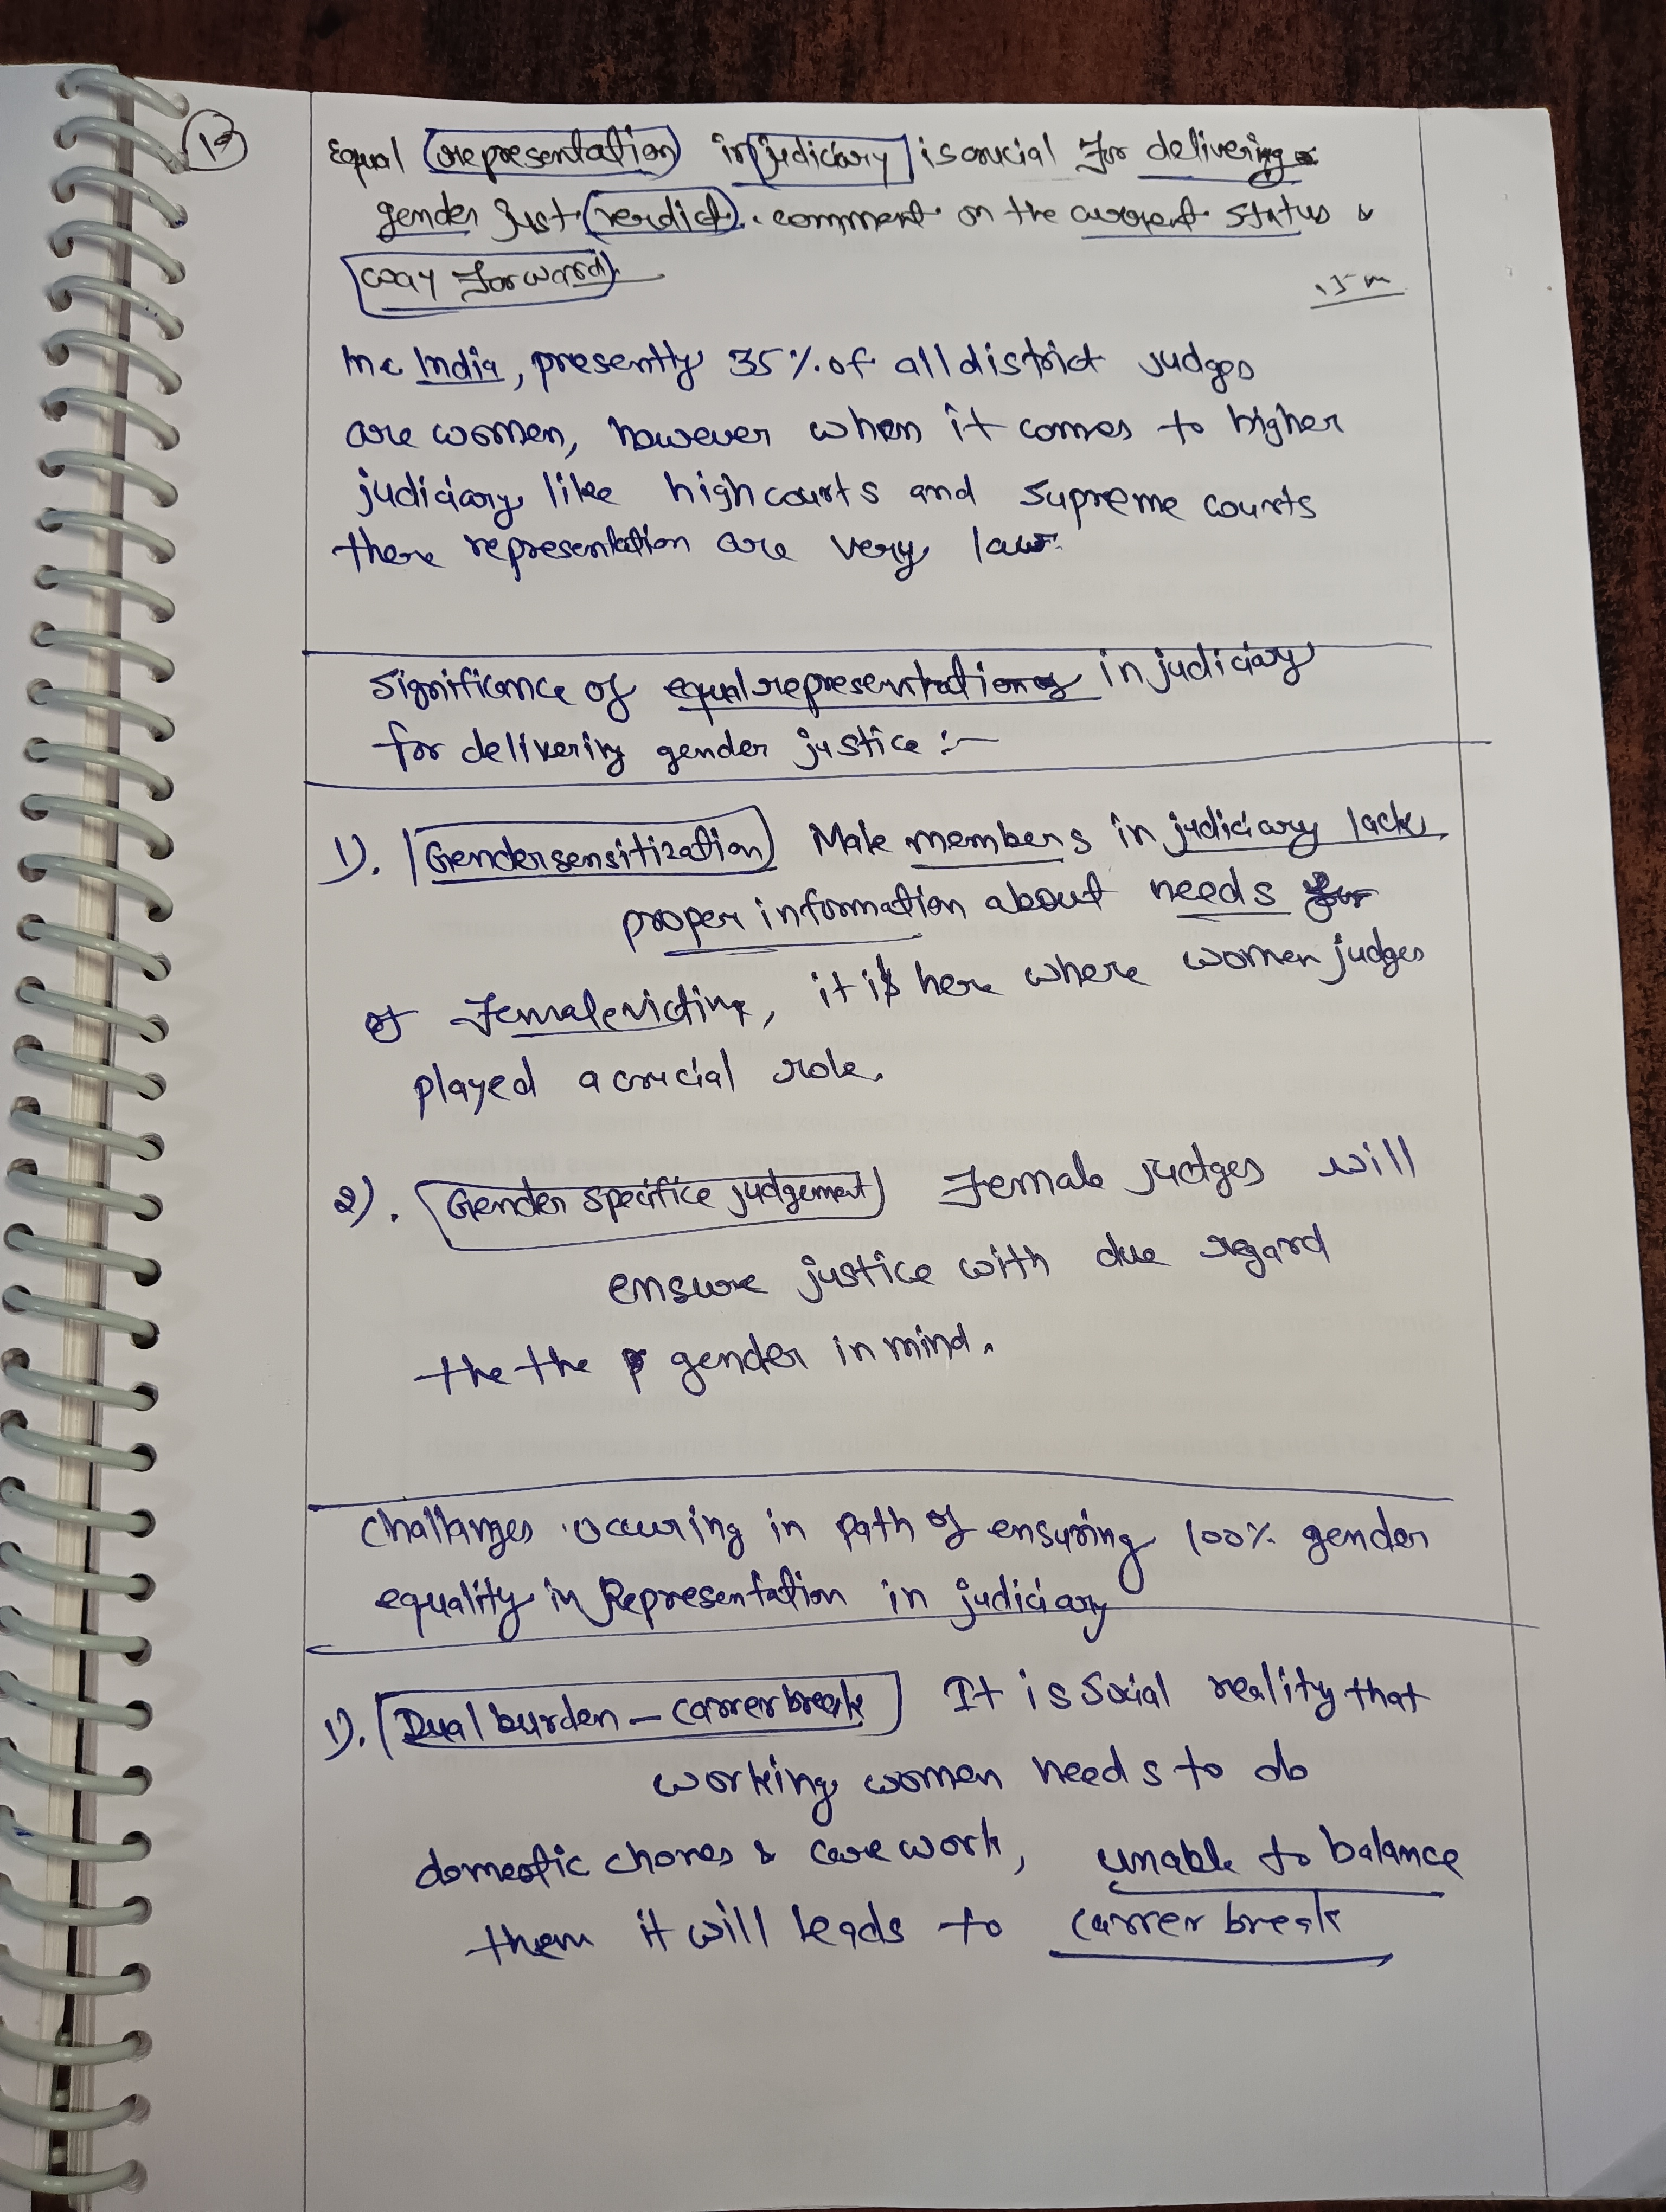 13
Equal representation in judiciary is crucial for delivering
gender just verdict. comment on the current status &
way forward.
15 m
In India, presently 35%. of all district judges
are women, however when it comes to higher
judiciary like high courts and supreme courts
there representation are very low.
Significance of equal representation in judiciary
for delivering gender justice :-
1). Gender sensitization Male members in judiciary lack
proper information about needs
of female victims, it is here where women judges
played a crucial role.
2). Gender specifice judgement Female judges will
ensure justice with due regard
the the gender in mind.
Challanges occuring in path of ensuring 100% gender
equality in Representation in judiciary
1). Dual burden - carrer break It is Social reality that
working women needs to do
domestic chores & care work, unable to balance
them it will leads to carrer break